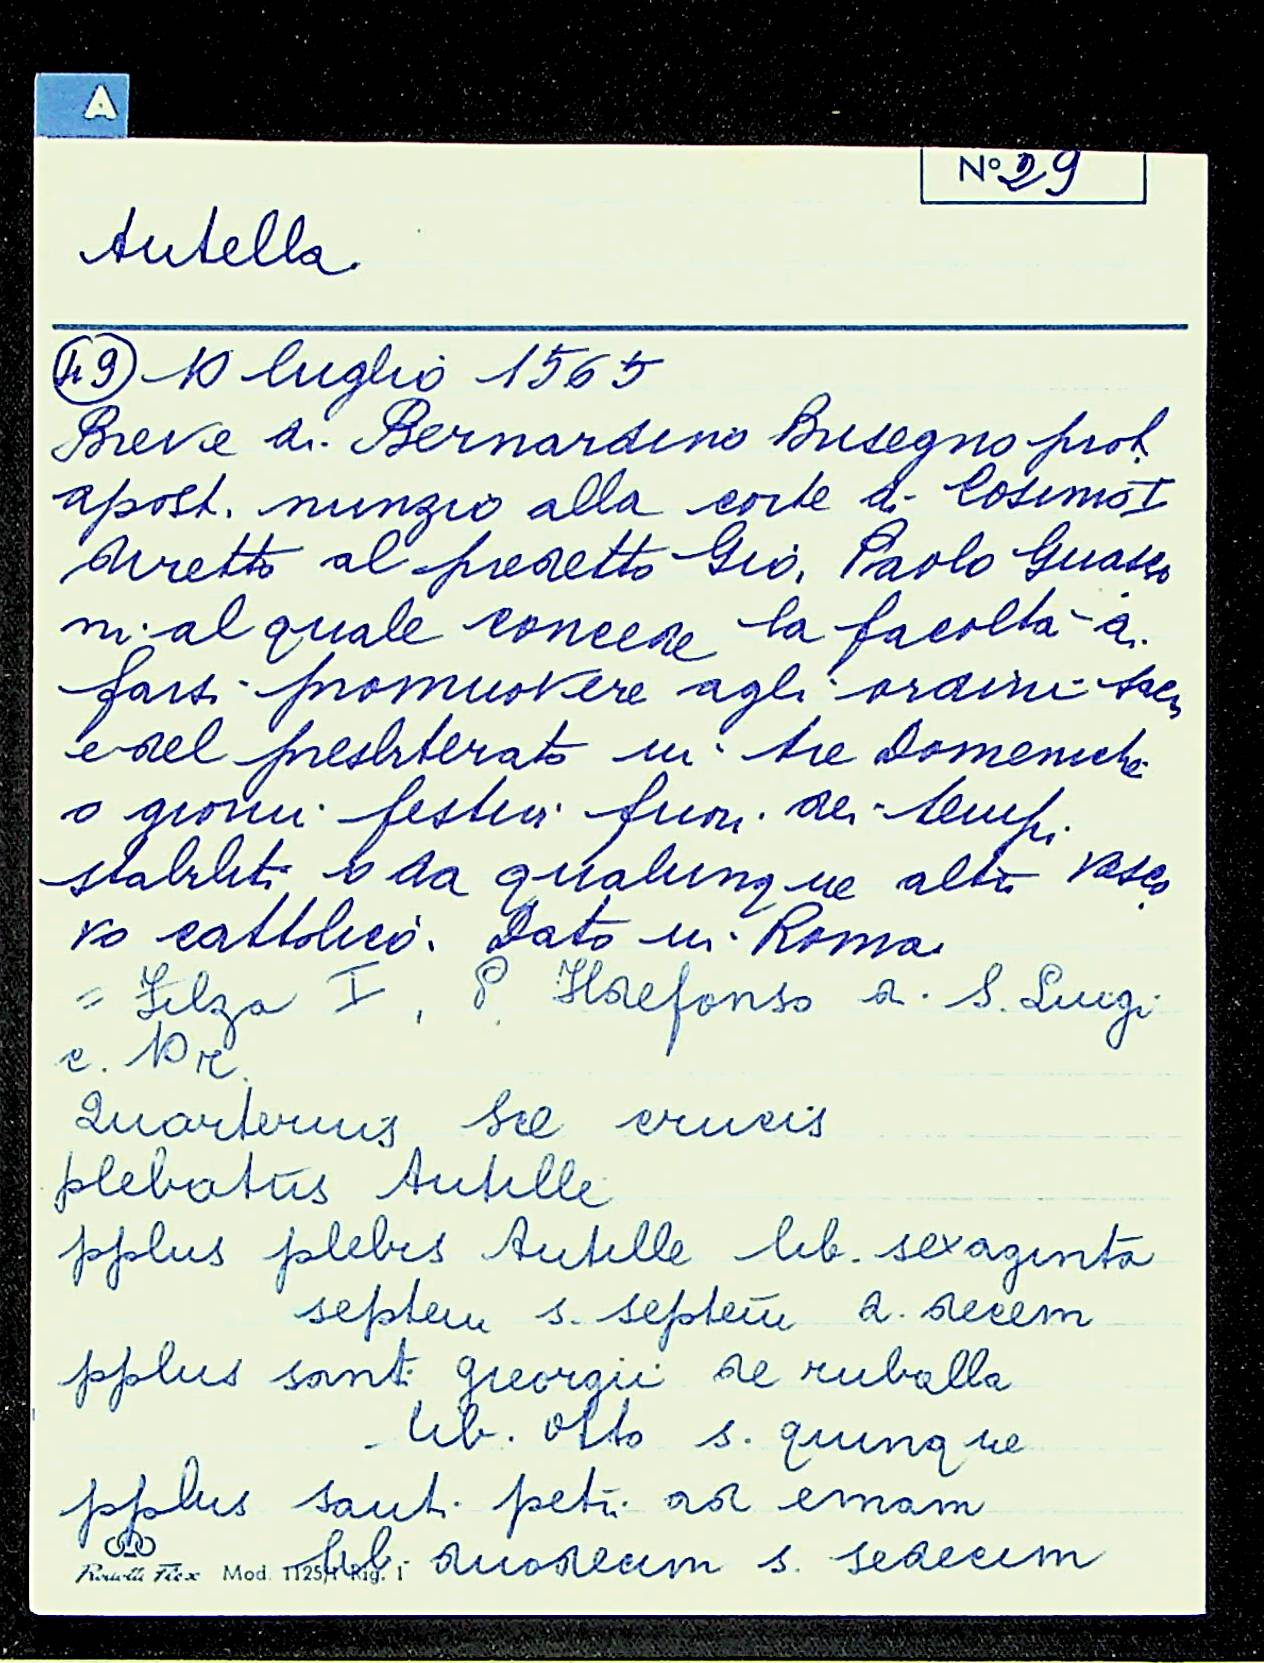 A
N° 29
Antella
49 10 luglio 1565
Breve di Bernardino Brusegno prot.
apost. nunzio alla corte di Cosimo I
diretto al predetto Gio. Paolo Guasco
ni al quale concede la facoltà di
farsi promuovere agli ordini sacri
e del presbiterato in tre Domeniche
o giorni festivi fuori dei tempi
stabiliti o da qualunque altro vesco
vo cattolico. Dato in Roma.
= Filza I, P. Ildefonso di S. Luigi
c. 10 r.
Quarternus Sce crucis
plebatus Antille
pplus plebis Antille lib. sexaginta
septem s. septem d. decem
pplus santi georgii de ruballa
lib. otto s. quinque
pplus santi petri ad emam
lib. duodecim s. sedecim
Mod. 1125/1 Rig. 1